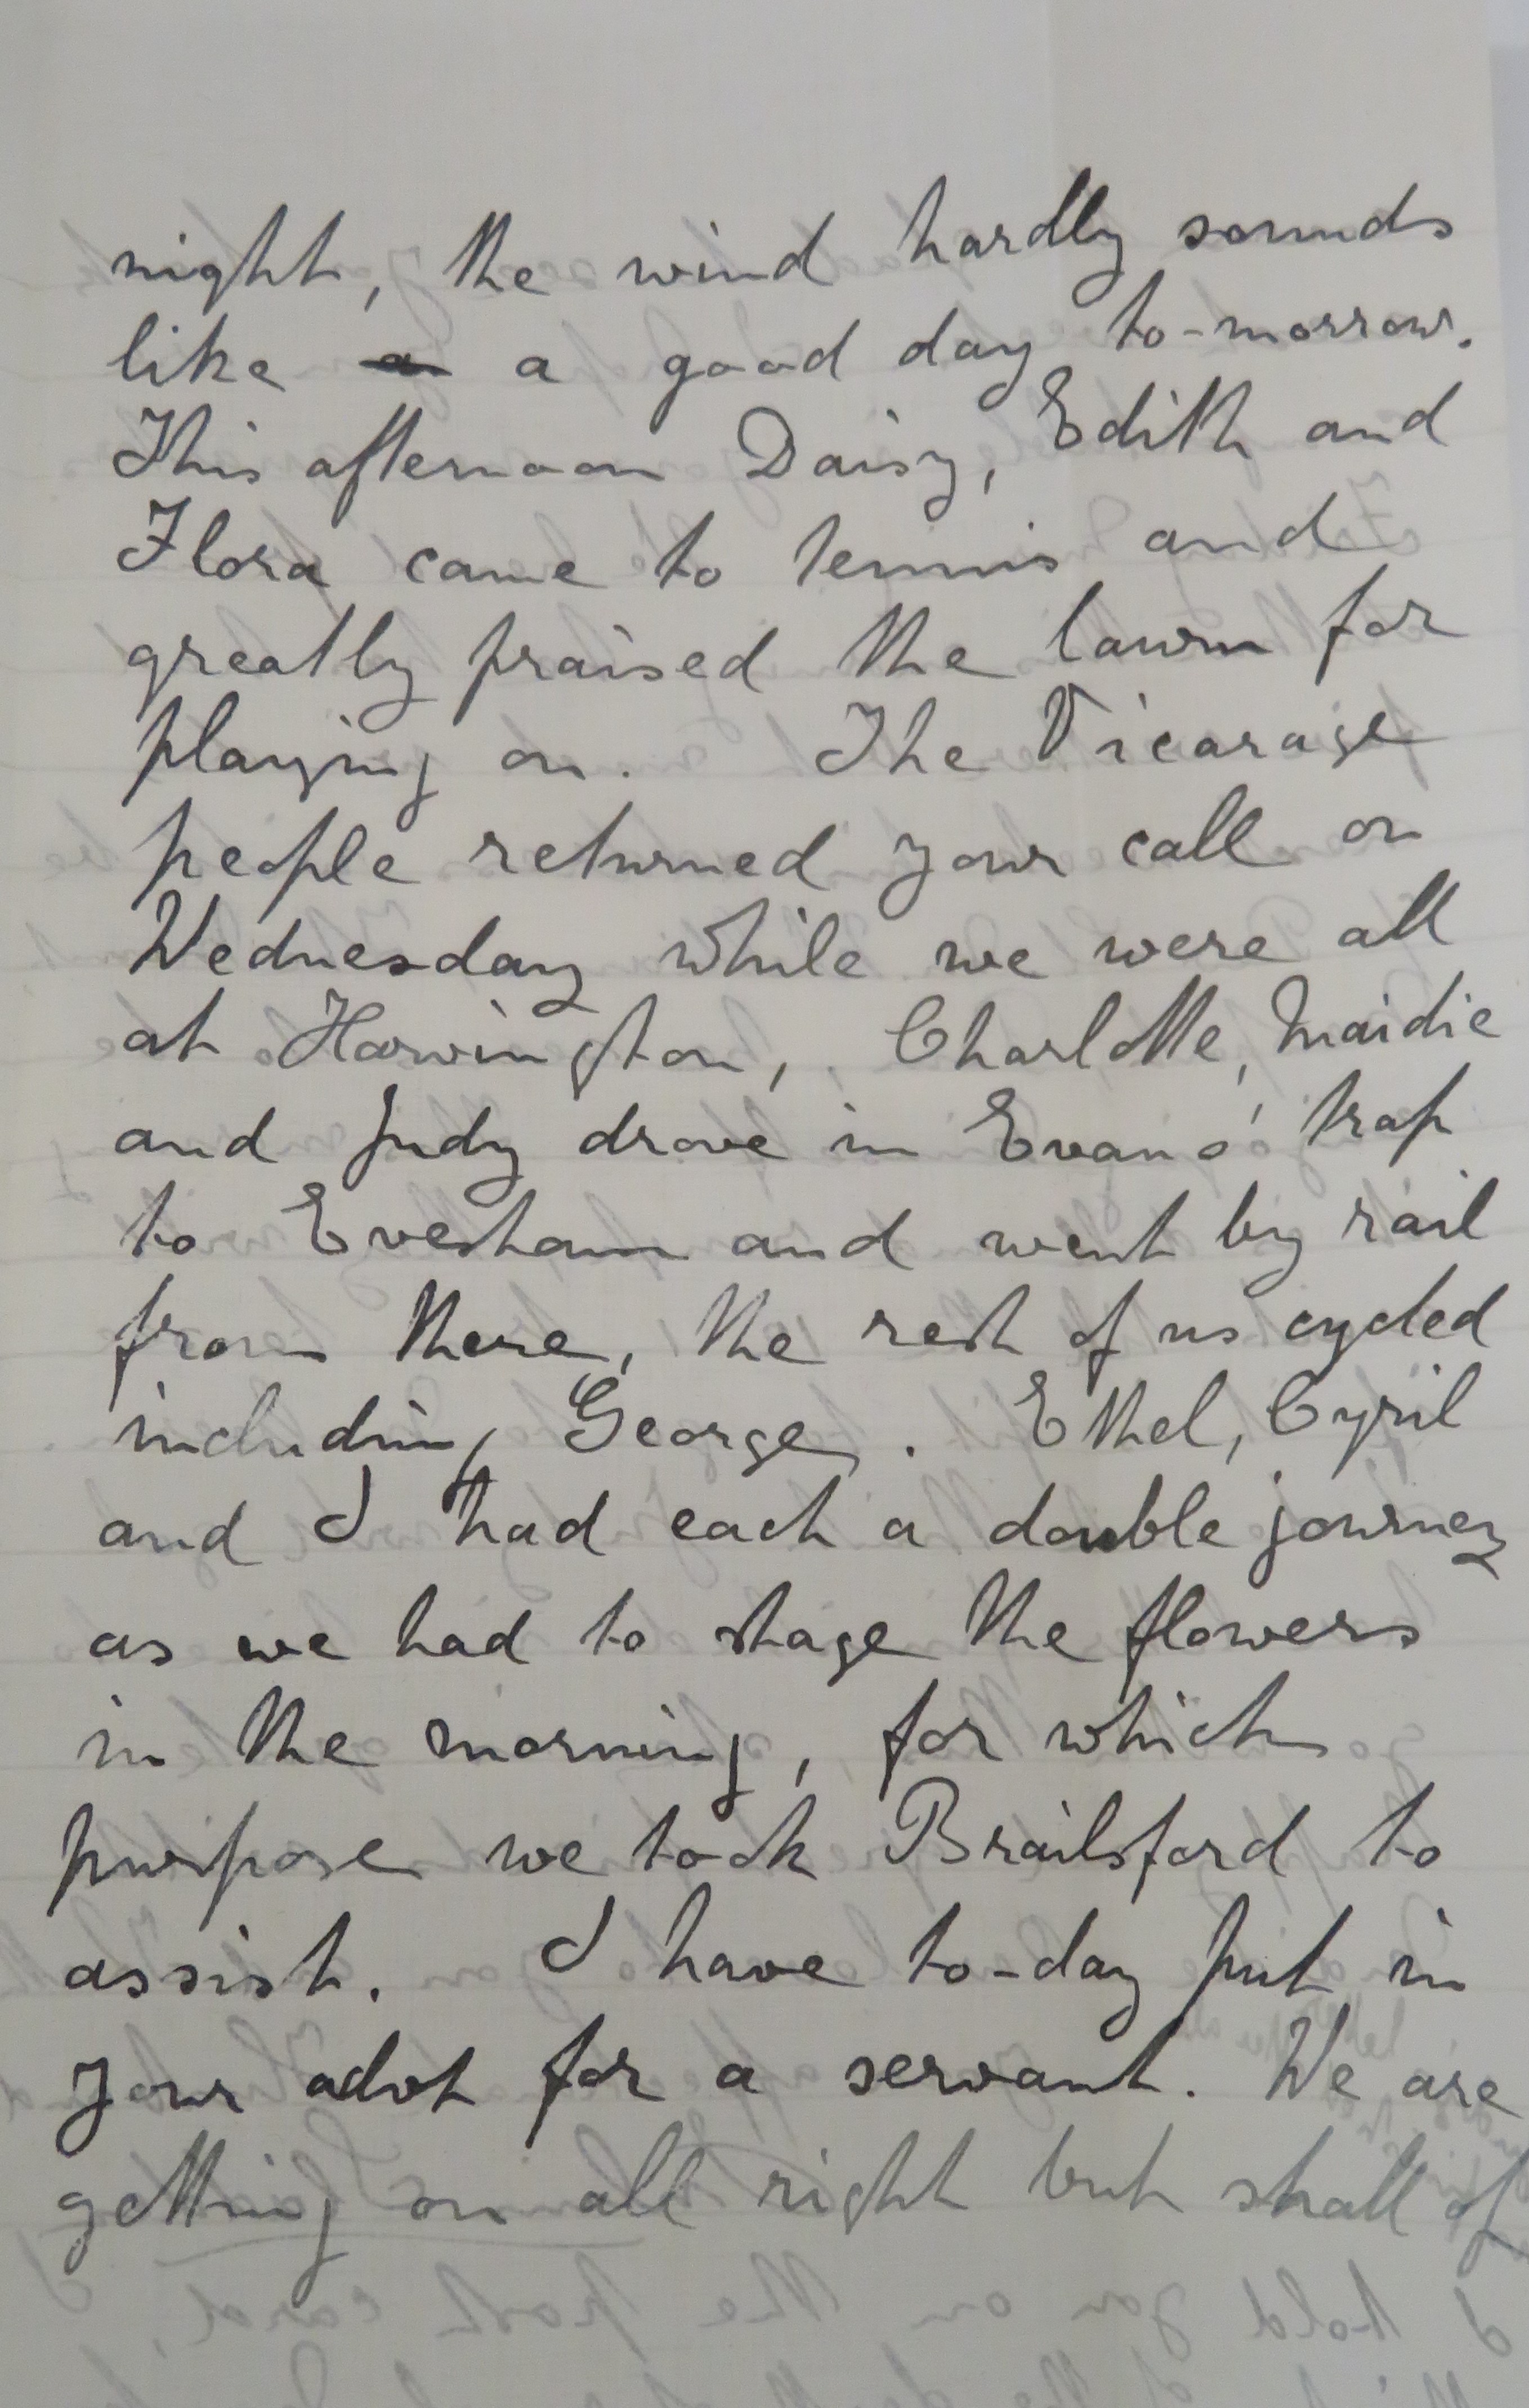 night, the wind hardly sounds
like a a good day to-morrow.
This afternoon Daisy, Edith and
Flora came to tennis and
greatly praised the lawn for
playing on. The Vicarage
people returned your call on
Wednesday while we were all
at Harvington, Charlotte, Maidie
and Judy drove in Evans' trap
to Evesham and went by rail
from there, the rest of us cycled
including George. Ethel, Cyril
and I had each a double journey
as we had to stage the flowers
in the morning, for which
purpose we took Brailsford to
assist. I have to-day put in
your advt for a servant. We are
getting on all right but shall of